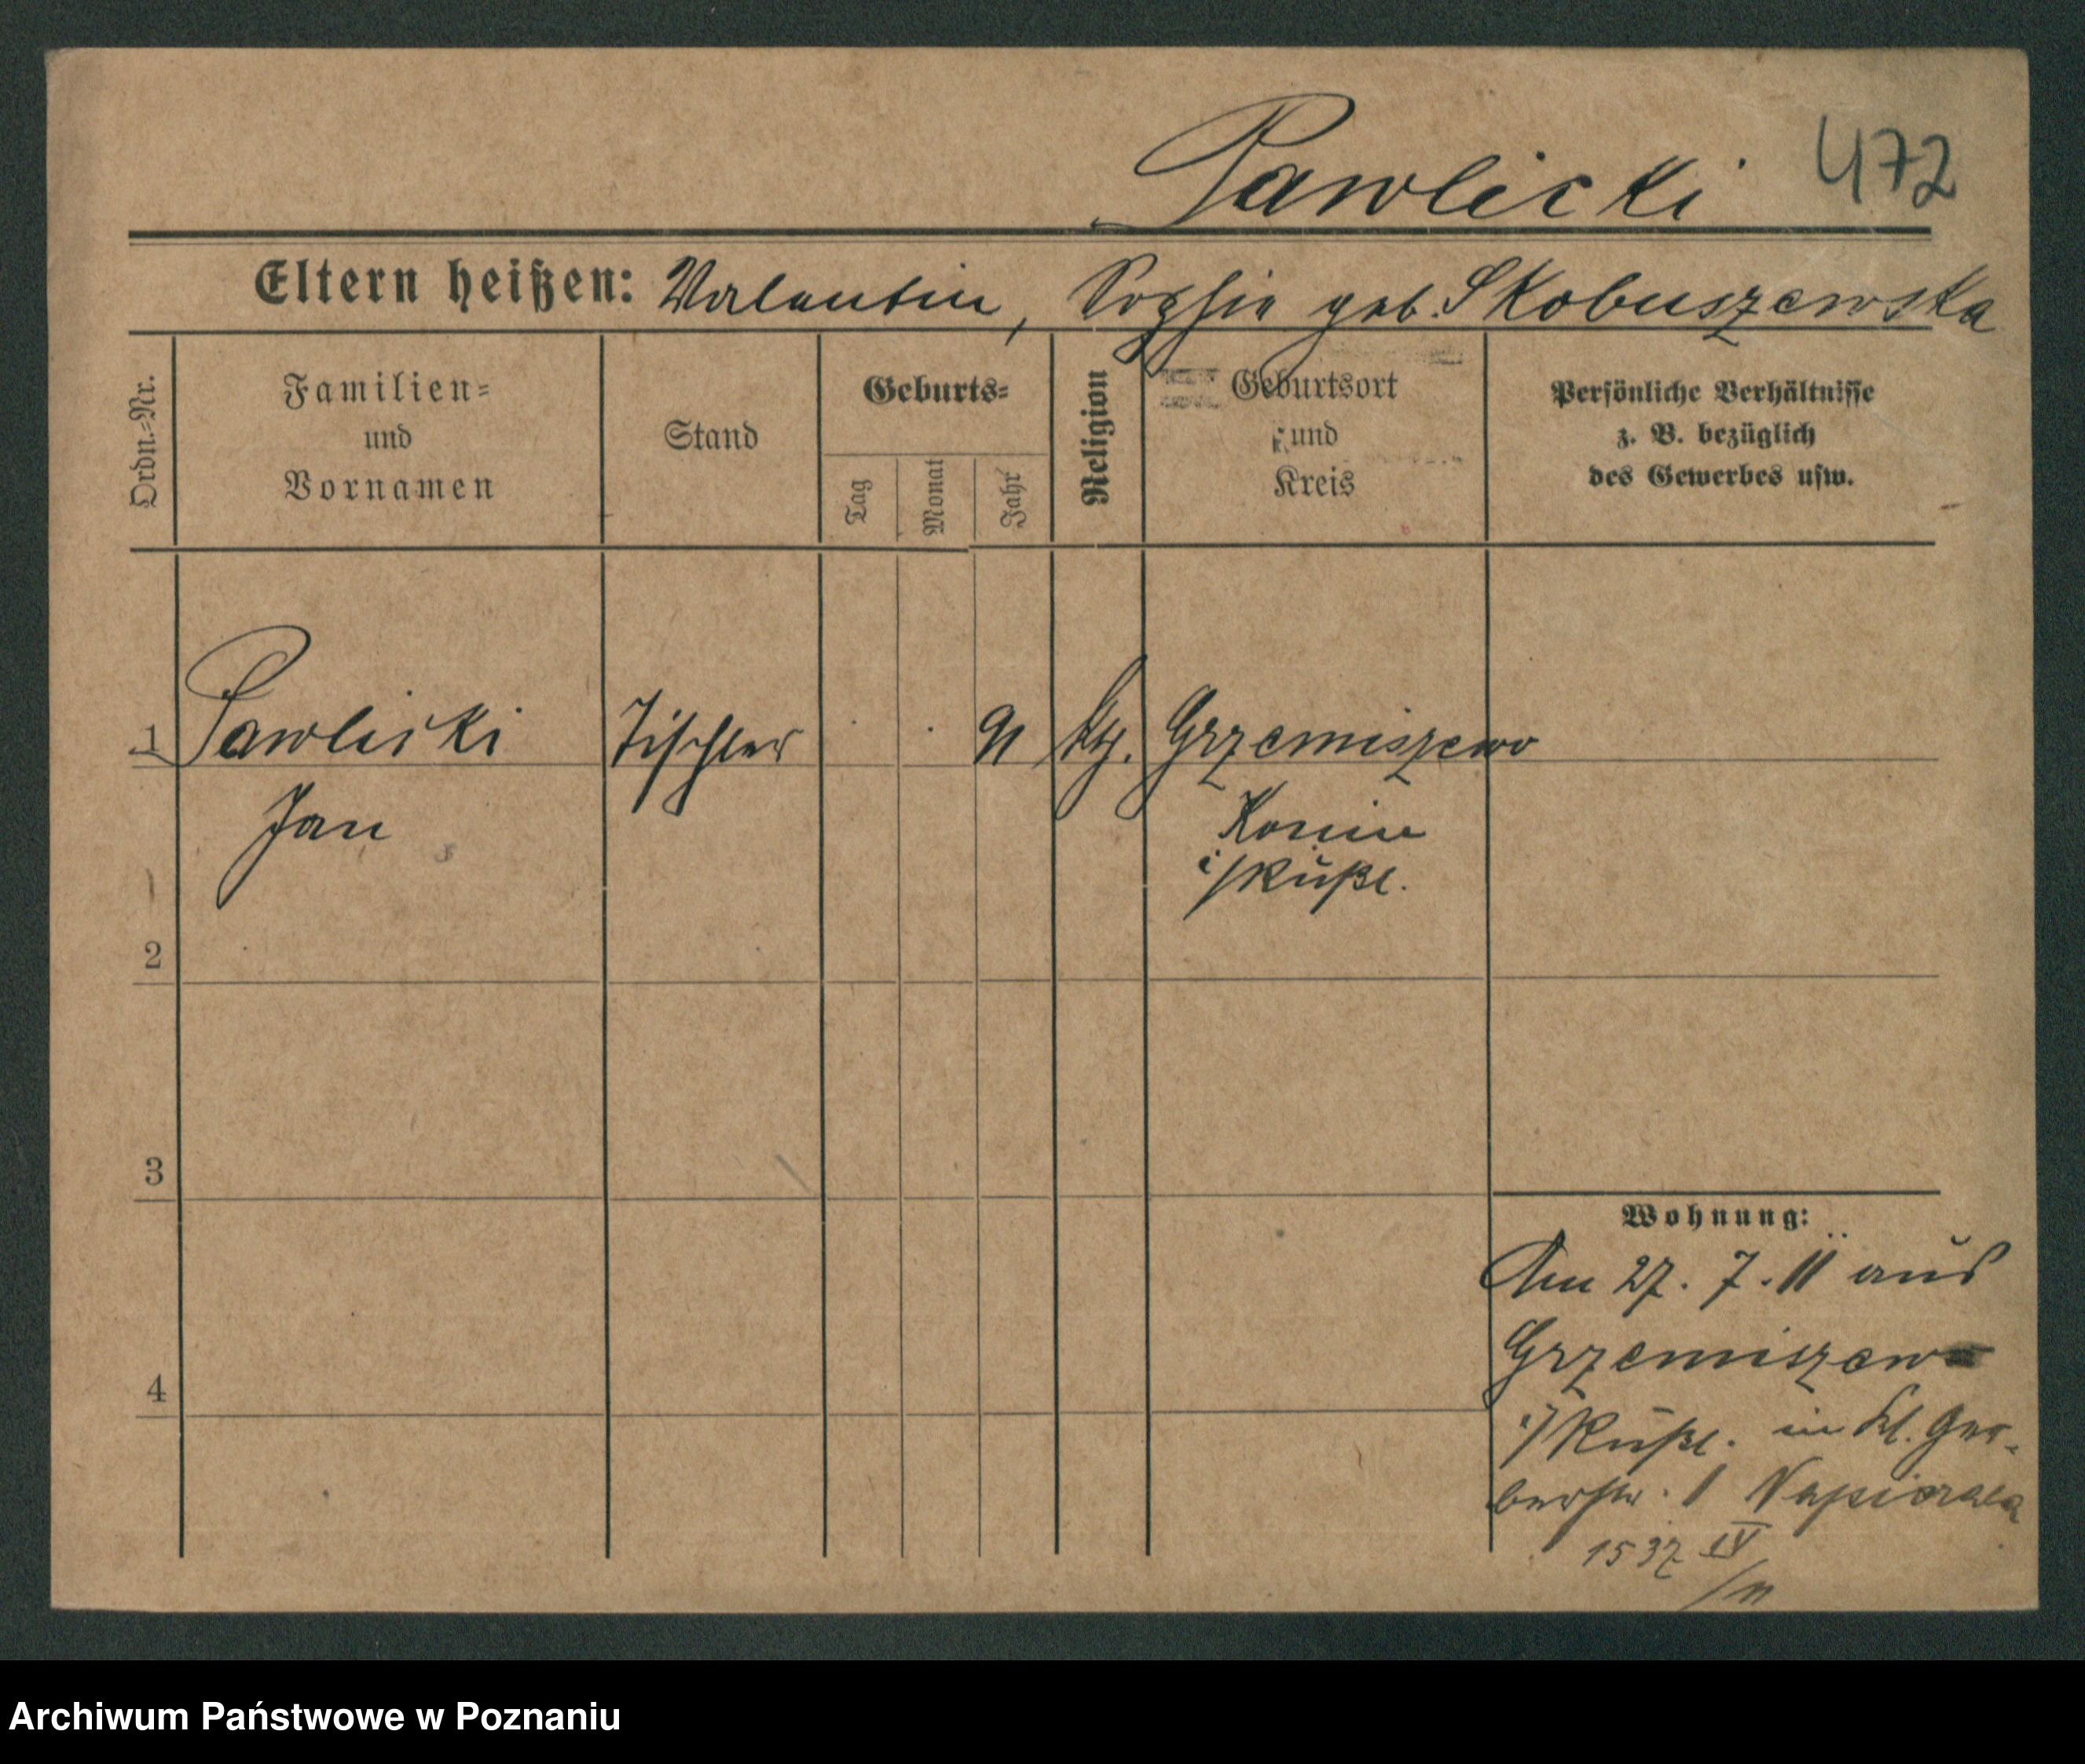 Pawlicki 472
Eltern heißen: Valentin, Sophie geb. Skobuszewska
Ordn.-Nr.
Familien-
und
Vornamen
Stand
Geburts-
Tag
Monat
Jahr
Religion
Geburtsort
und
Kreis
Persönliche Verhältnisse
z. B. bezüglich
des Gewerbes usw.
1 Pawlicki Tischler 91 kth. Grzemiszewo
Jan Konin
i/Rußl.
2
3
4
Wohnung:
Am 27. 7. 11 aus
Grzemiszewo
i/Rußl. in Kl. Ger-
berstr. 1 Napierala
1537 IV
/11
Archiwum Państwowe w Poznaniu